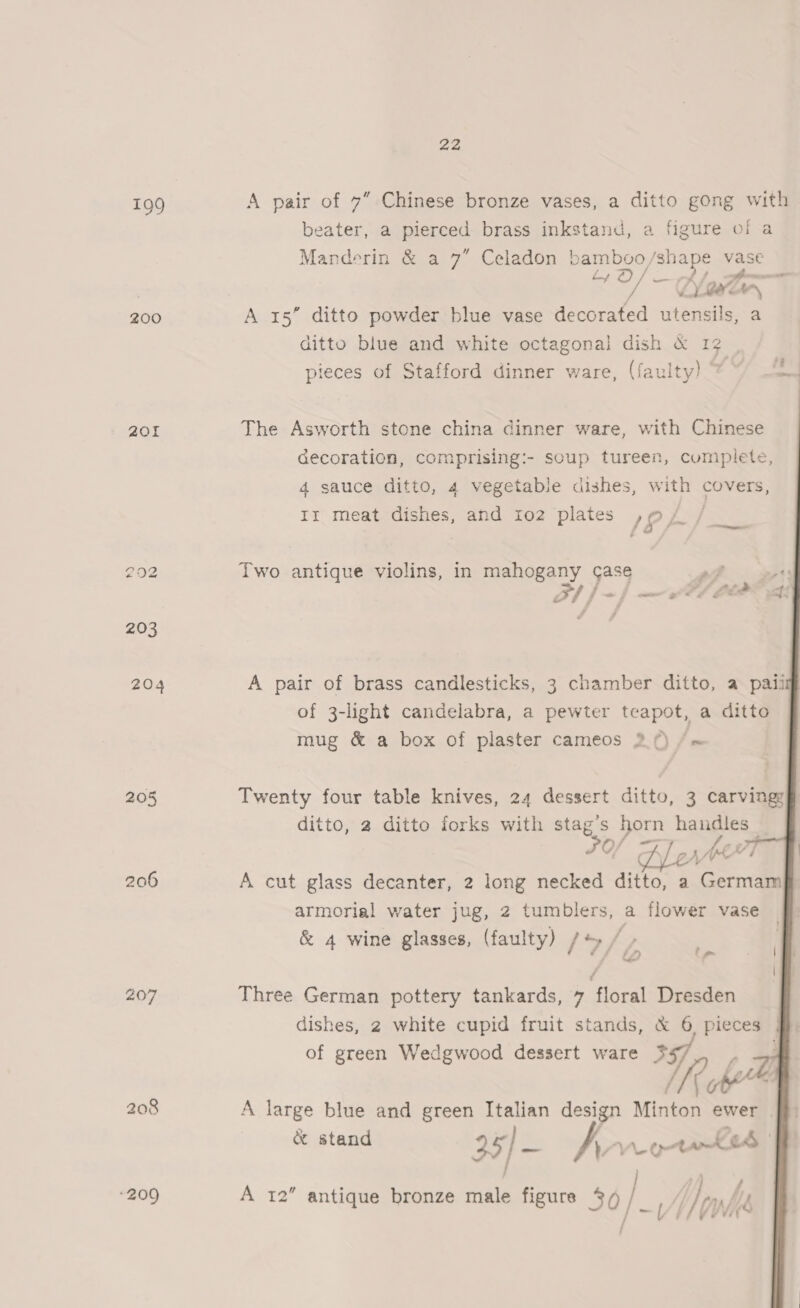 22
199 A pair of 7" Chinese bronze vases, a ditto gong with
beater, a pierced brass inkstand, a figure of a
Manderin & a 7" Celadon bamboo/shape vase
200 A 15" ditto powder blue vase decorated utensils, a
ditto blue and white octagonal dish & 12
pieces of Stafford dinner ware, (faulty) "
201 The Asworth stone china dinner ware, with Chinese
decoration, comprising:- soup tureen, complete,
4 sauce ditto, 4 vegetable dishes, with covers,
11 meat dishes, and 102 plates
202 Two antique violins, in mahogany case
203
204 A pair of brass candlesticks, 3 chamber ditto, a pair
of 3-light candelabra, a pewter teapot, a ditto
mug & a box of plaster cameos 20/-
205 Twenty four table knives, 24 dessert ditto, 3 carving
ditto, 2 ditto forks with stag's horn handles
206 A cut glass decanter, 2 long necked ditto, a German
armorial water jug, 2 tumblers, a flower vase
& 4 wine glasses, (faulty)
207 Three German pottery tankards, 7 floral Dresden
dishes, 2 white cupid fruit stands, & 6 pieces
of green Wedgwood dessert ware
208 A large blue and green Italian design Minton ewer
& stand 35/-
209 A 12" antique bronze male figure